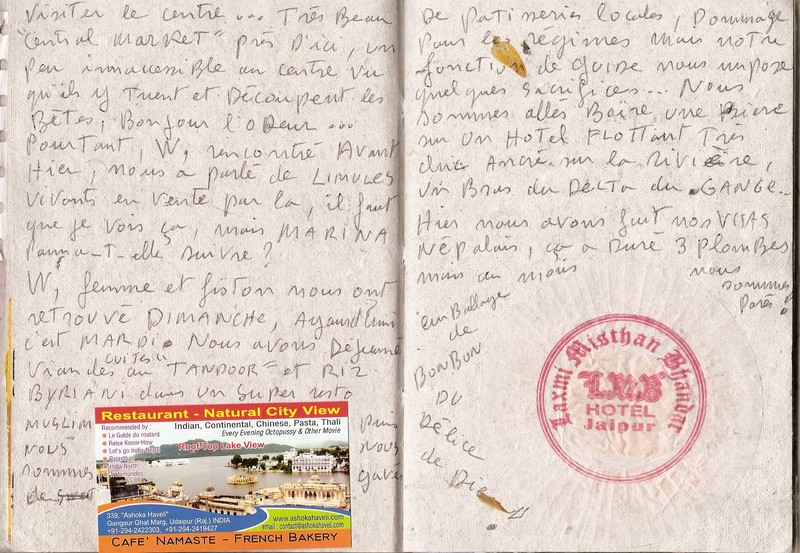 Visiter le centre... Très Beau
"Central Market" près D'ici, un
peu innaccessible au centre vu
qu'ils y Tuent et Découpent les
Bêtes, Bonjour l'oDeur...
Pourtant, W, rencontré Avant
Hier, nous a parlé de Limules
vivants en vente par la, il faut
que je vois ça, mais MARINA
Pourra-T-elle suivre ?
W, femme et fiston nous ont
retrouvé DIMANCHE, Aujourd'hui
c'est MARDI. Nous avons Déjeuné
Viandes cuites au "TANDOOR" et RIZ
BYRIANI dans un super resto
MUSLIM Puis
NOUS NOUS
sommes gavés
de
Restaurant - Natural City View
Recommended by :
Indian, Continental, Chinese, Pasta, Thali
Every Evening Octopussy & Other Movie
Le Guide du routard
Reise Know-How
Let's go India Nepal
Rajasthan
India North
Roof-Top Lake View
339, "Ashoka Haveli"
Gangaur Ghat Marg, Udaipur (Raj.) INDIA
+91-294-2422303, +91-294-2419427
www.ashokahaveli.com
email : contact@ashokahaveli.com
CAFE' NAMASTE - FRENCH BAKERY
De Patisseries locales, Dommage
Pour les régimes mais notre
fonction de Guide nous impose
quelques sacrifices... Nous
sommes allés Boire une Bière
sur un Hotel FLOTTANT Très
chic Ancré sur la Rivière,
un Bras du Delta du GANGE...
Hier nous avons fait nos VISAS
Népalais, ça a duré 3 Plombes
mais au moins nous
sommes
Parés !
emballage
de
BONBON
DU
Délice
de Dieu
Laxmi Misthan Bhandar
L.M.B
HOTEL
Jaipur